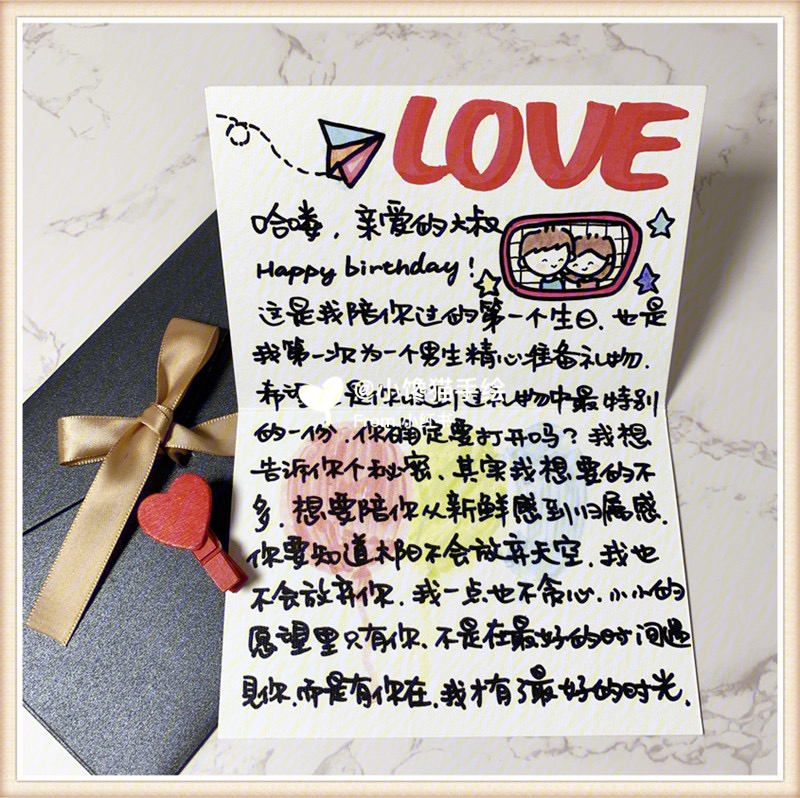 LOVE
哈喽，亲爱的大叔
Happy birthday！
这是我陪你过的第一个生日，也是
我第一次为一个男生精心准备礼物．
@小馋猫手绘
希 是你 礼物中最特别
From 小红书
的一份，你确定要打开吗？我想
告诉你个秘密，其实我想要的不
多，想要陪你从新鲜感到归属感．
你要知道太阳不会放弃天空，我也
不会放弃你，我一点也不贪心，小小的
愿望里只有你，不是在最好的时间遇
见你，而是有你在，我才有了最好的时光．